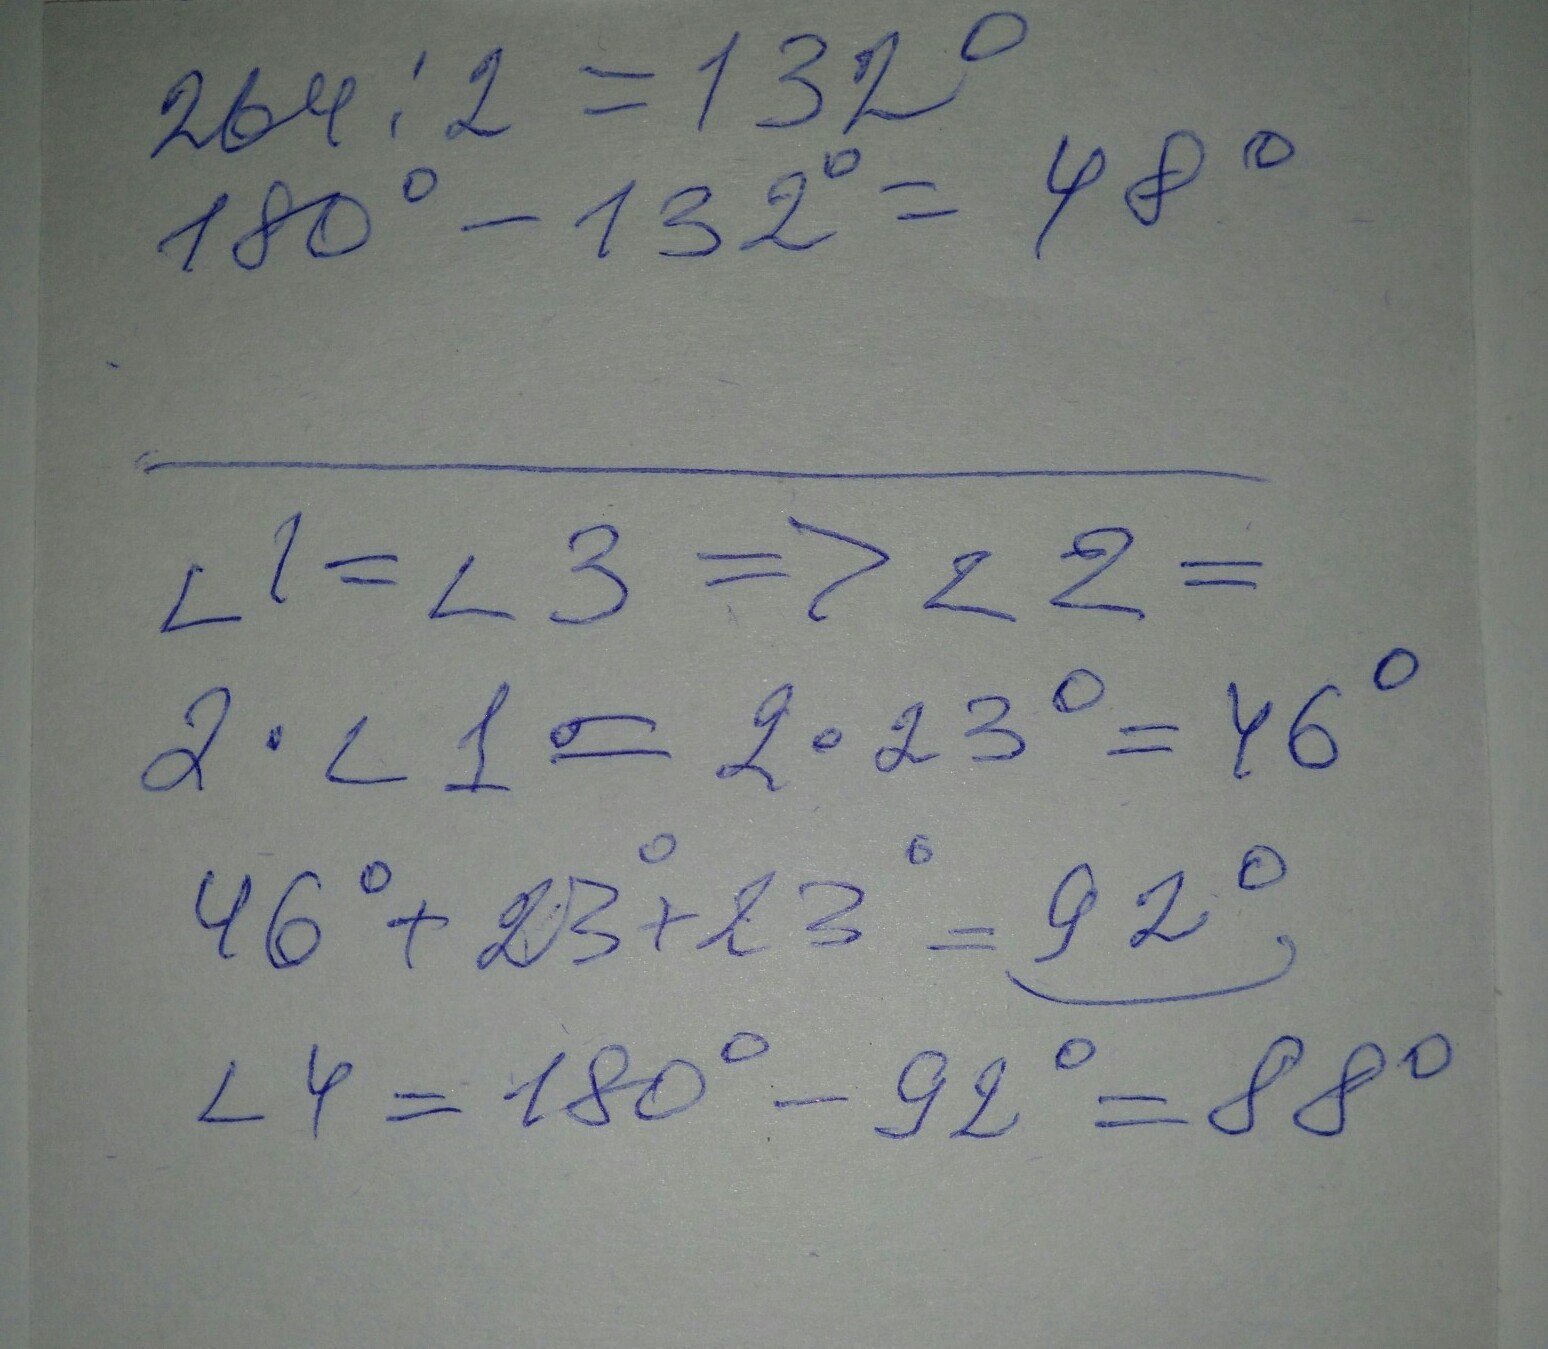 264 : 2 = 132°
180° - 132° = 48°
∠1 = ∠3 => ∠2 =
2 · ∠1 = 2 · 23° = 46°
46° + 23° + 23° = 92°,
∠4 = 180° - 92° = 88°